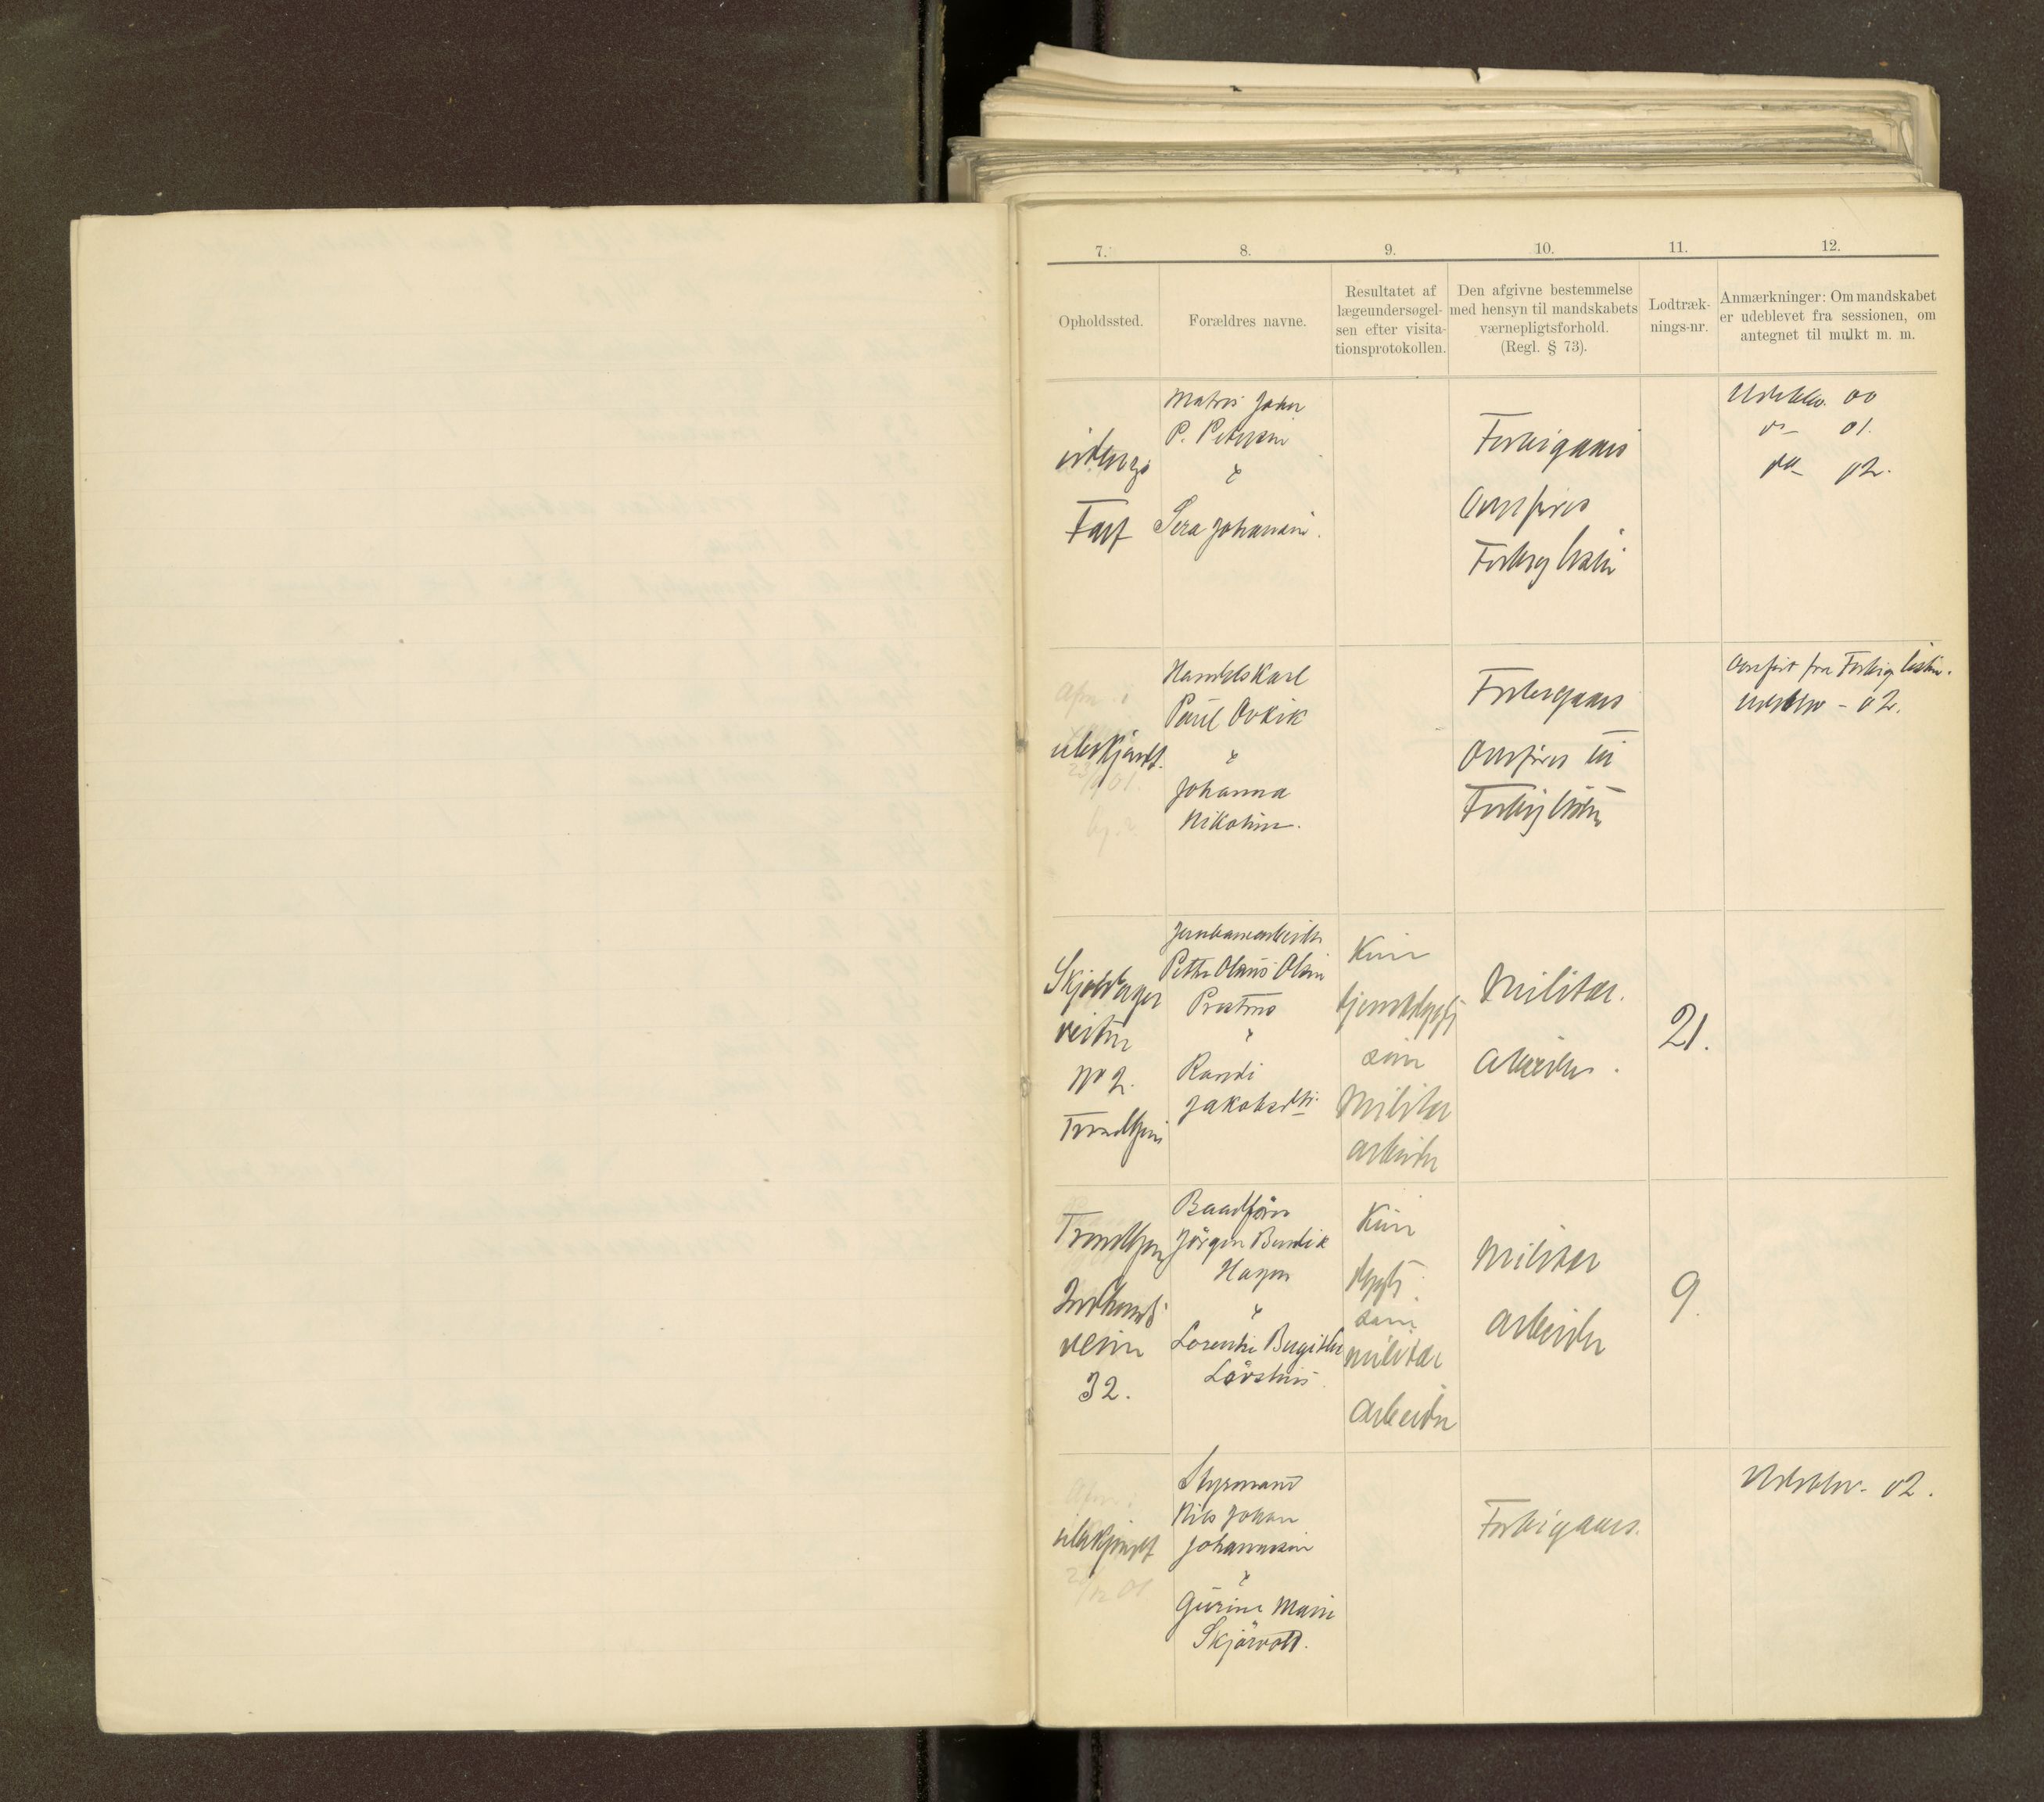 7. 8. 9. 10. 11. 12.
Opholdssted.
Forældres navne.
Resultatet af
lægeundersøgel-
sen efter visita-
tionsprotokollen.
Den afgivne bestemmelse
med hensyn til mandskabets
værnepligtsforhold.
(Regl. § 73).
Lodtræk-
nings-nr.
Anmærkninger: Om mandskabet
er udeblevet fra sessionen, om
antegnet til mulkt m. m.
Fart
Matros Johan
P. Petersen
&
Sera Johansen.
Forbigaaes
Overføres
Forbig listen
Udeblev. 00
do 01.
do 02.
ubekjendt.
Handelskarl
Paul Ovkik
&
Johanna
Nikoline.
Forbigaaes
Overføres til
Forbig listen
Overført fra Forbig listen.
Udeblev - 02.
Skjoldager
veiten
No 2.
Trondhjem
Jernbanearbeider
Petter Olaus Olsen
Prestmo
&
Randi
Jakobsdtr.
Kun
tjenstdygtig
som
Militær
arbeider
Militær.
Arbeider.
21.
Trondhjem
veien
32.
Baadfører
Jörgen Bendik
Hagen
&
Lorentze Bergitte
Lövstens
Kun
dygtig
som
militær
Arbeider
Militær
arbeider
9.
ubekjendt
Styrmand
Nils Johan
Johannesen
&
Gurine Marie
Skjärvold.
Forbigaaes.
Udeblev. 02.